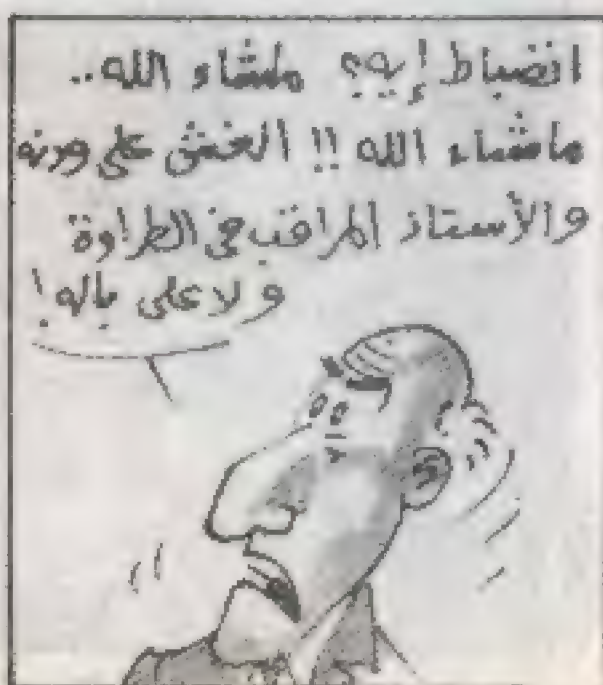 انضباط إيه؟ ماشاء الله..
ماشاء الله!! الغش على ودنه
والأستاذ المراقب في الطراوة
ولا على باله!